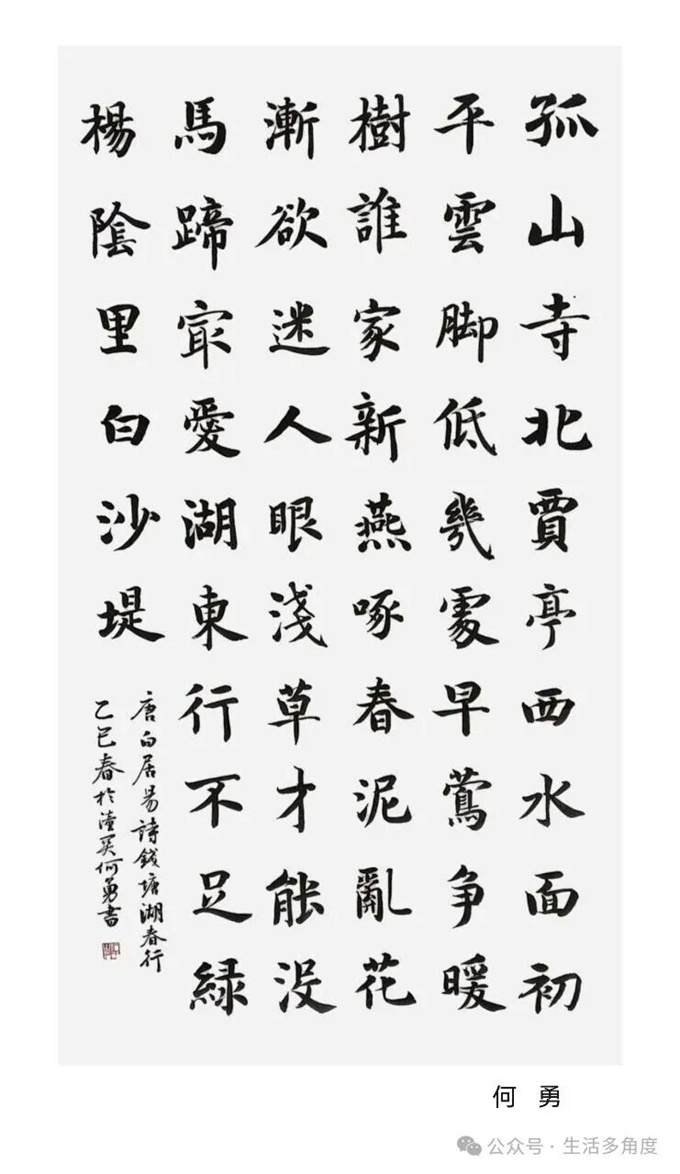 孤山寺北賈亭西水面初
平雲脚低幾處早鶯争暖
樹誰家新燕啄春泥亂花
漸欲迷人眼淺草才能没
馬蹄冣愛湖東行不足緑
楊陰里白沙堤
唐白居易詩錢塘湖春行
乙巳春於潼关何勇書
何 勇
公众号 · 生活多角度